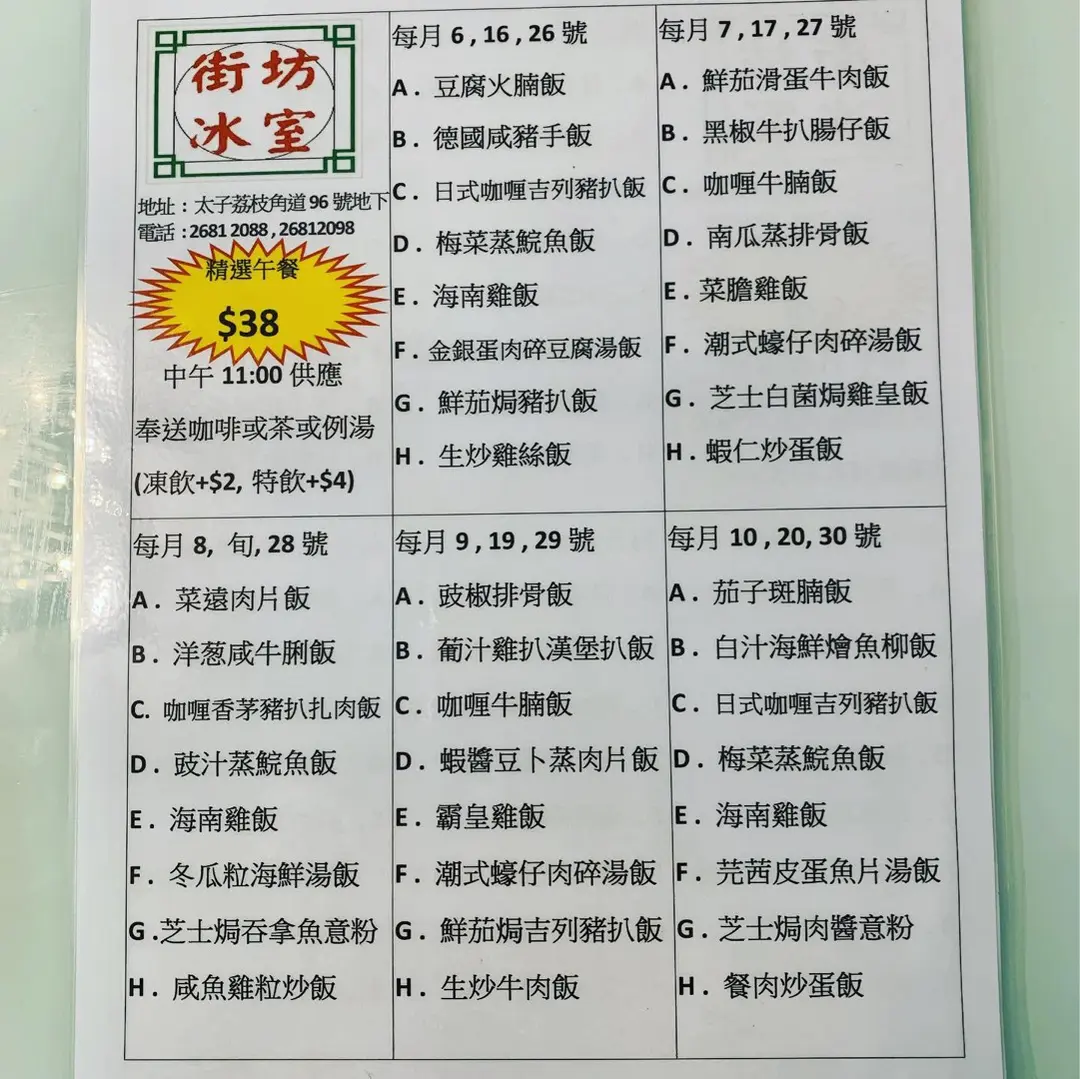 街坊
冰室
地址：太子荔枝角道 96 號地下
電話：2681 2088 , 26812098
精選午餐
$38
中午 11:00 供應
奉送咖啡或茶或例湯
(凍飲+$2, 特飲+$4)
每月 6 , 16 , 26 號
A . 豆腐火腩飯
B . 德國咸豬手飯
C . 日式咖喱吉列豬扒飯
D . 梅菜蒸鯇魚飯
E . 海南雞飯
F . 金銀蛋肉碎豆腐湯飯
G . 鮮茄焗豬扒飯
H . 生炒雞絲飯
每月 7 , 17 , 27 號
A . 鮮茄滑蛋牛肉飯
B . 黑椒牛扒腸仔飯
C . 咖喱牛腩飯
D . 南瓜蒸排骨飯
E . 菜膽雞飯
F . 潮式蠔仔肉碎湯飯
G . 芝士白菌焗雞皇飯
H . 蝦仁炒蛋飯
每月 8, 旬, 28 號
A . 菜遠肉片飯
B . 洋葱咸牛脷飯
C. 咖喱香茅豬扒扎肉飯
D . 豉汁蒸鯇魚飯
E . 海南雞飯
F . 冬瓜粒海鮮湯飯
G .芝士焗吞拿魚意粉
H . 咸魚雞粒炒飯
每月 9 , 19 , 29 號
A . 豉椒排骨飯
B . 葡汁雞扒漢堡扒飯
C . 咖喱牛腩飯
D . 蝦醬豆卜蒸肉片飯
E . 霸皇雞飯
F . 潮式蠔仔肉碎湯飯
G . 鮮茄焗吉列豬扒飯
H . 生炒牛肉飯
每月 10 , 20, 30 號
A . 茄子斑腩飯
B . 白汁海鮮燴魚柳飯
C . 日式咖喱吉列豬扒飯
D . 梅菜蒸鯇魚飯
E . 海南雞飯
F . 芫茜皮蛋魚片湯飯
G . 芝士焗肉醬意粉
H . 餐肉炒蛋飯